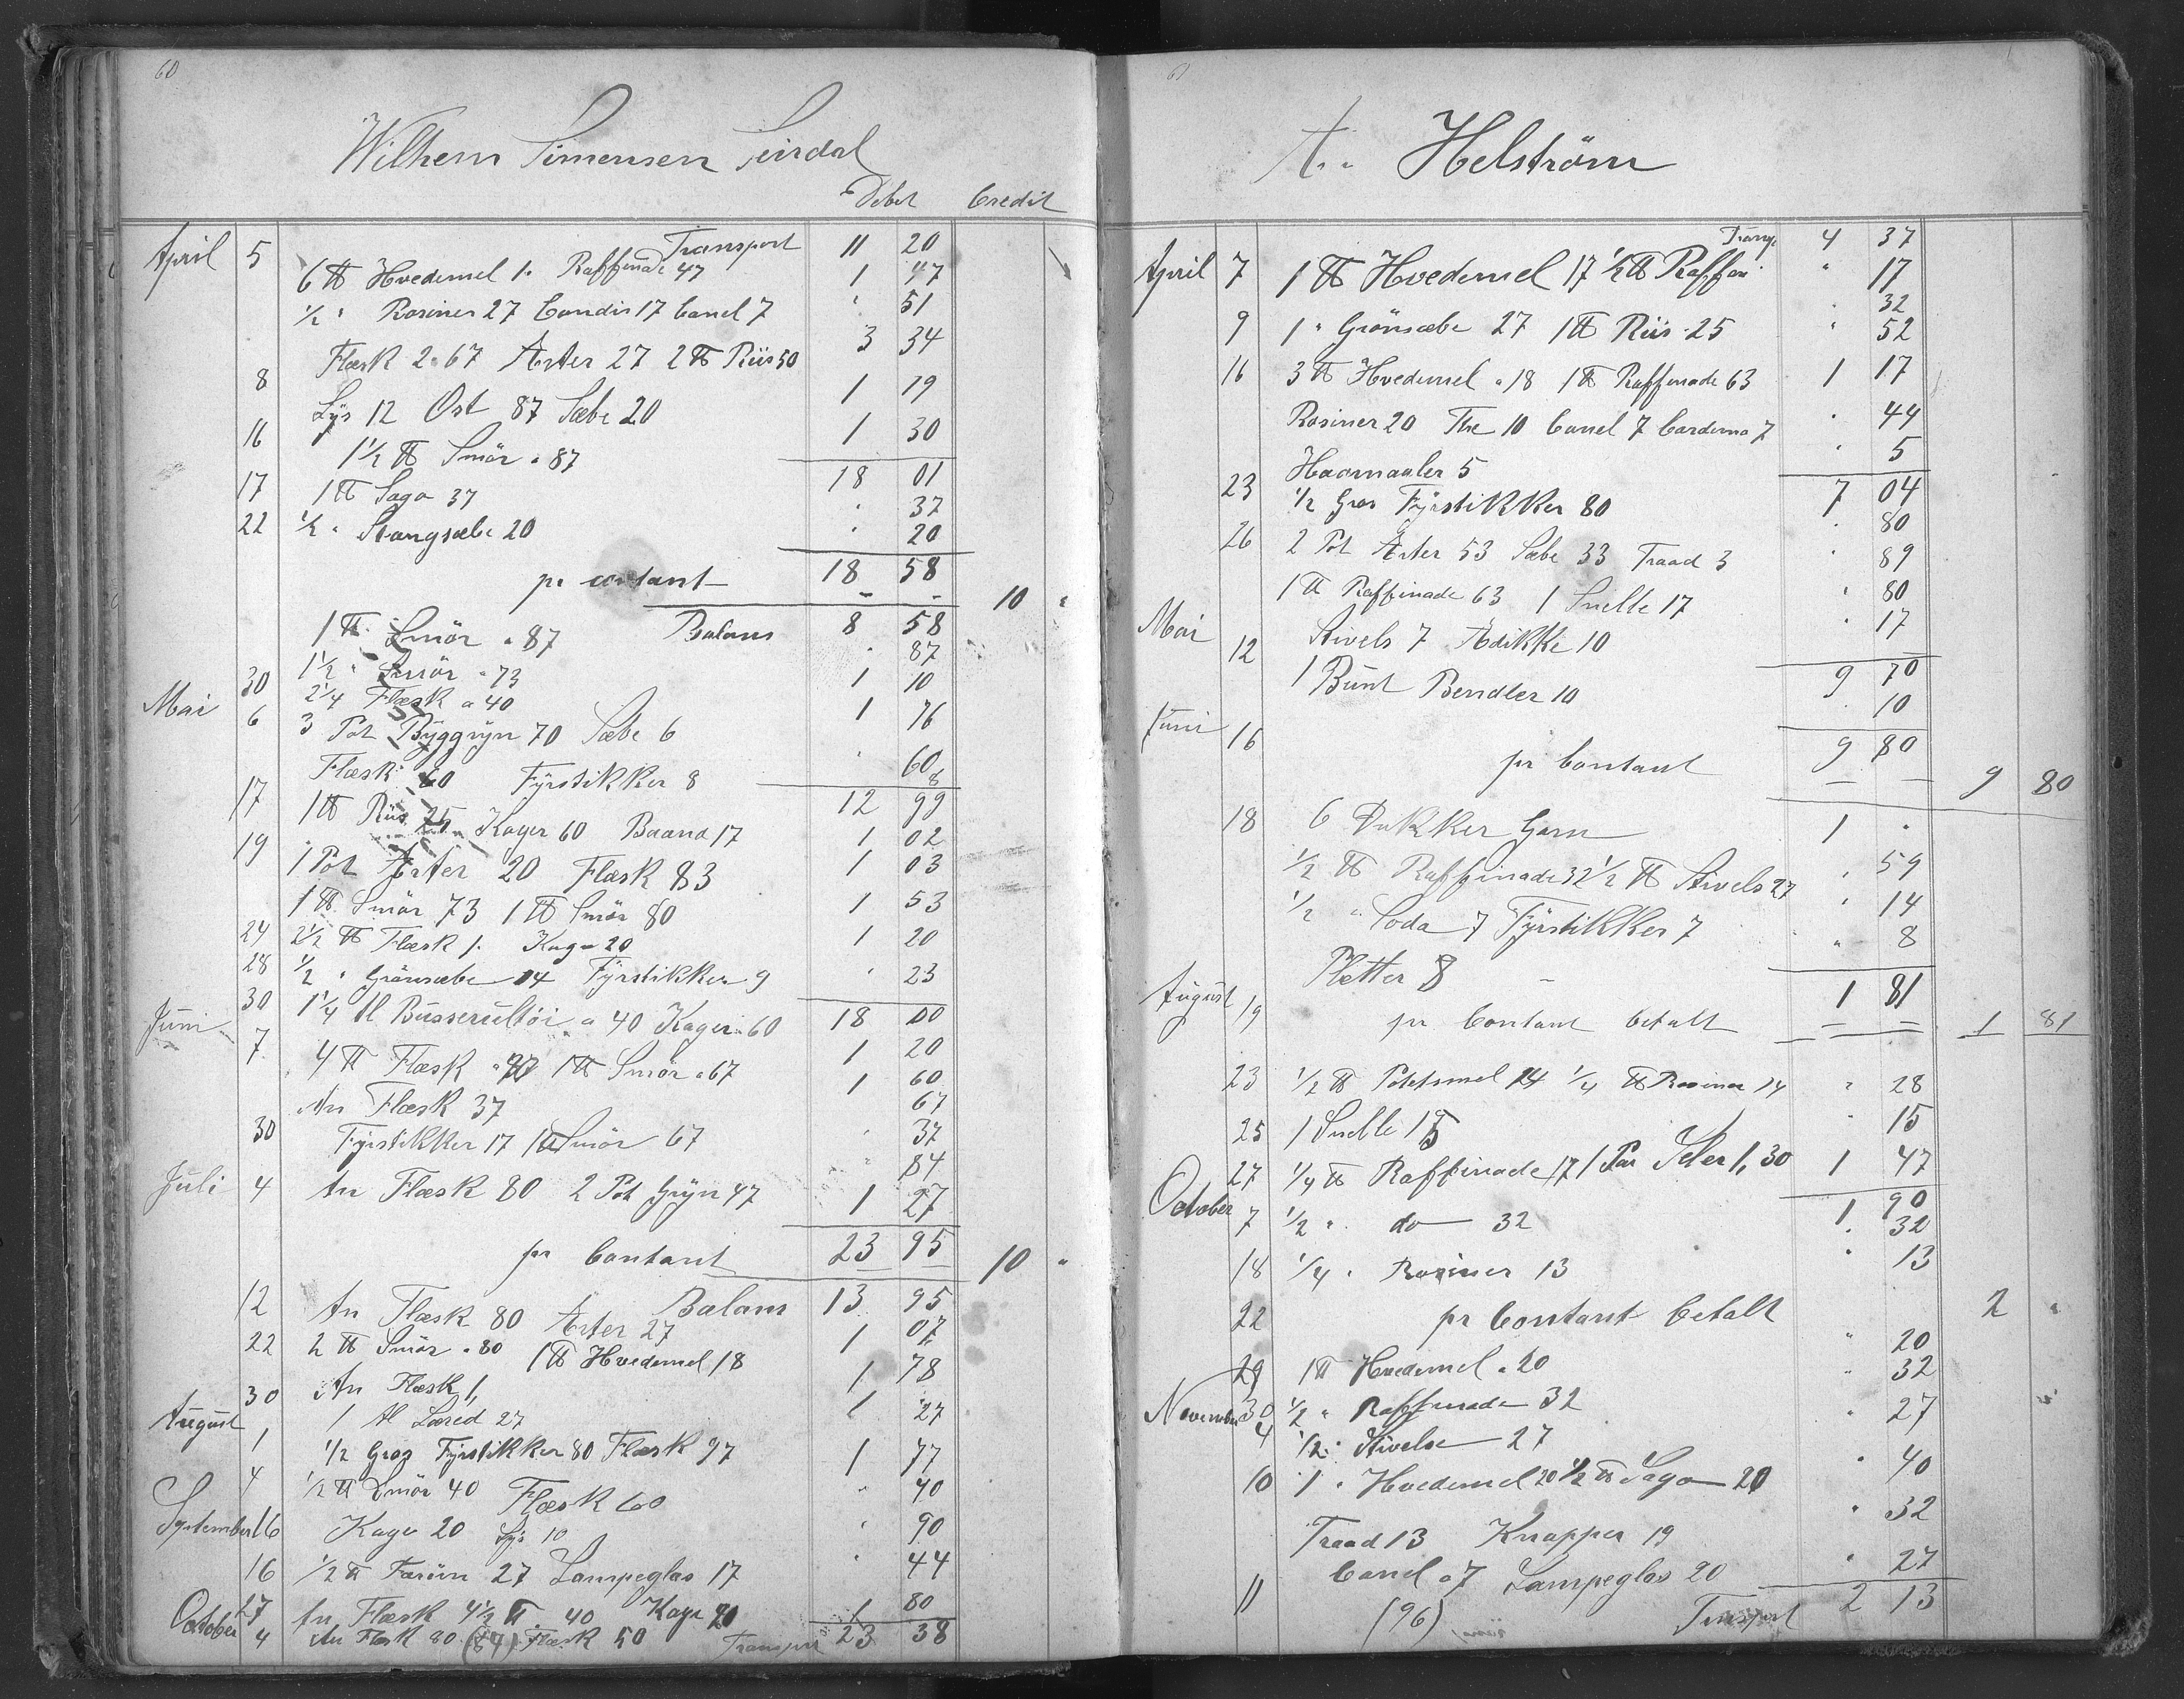 60
Wilhem Simensen Seirdal
Debet Credit
Transport 11 20
April 5 6 ℔ Hvedemel 1. Raffinade 47 1 47
1/2 " Rosiner 27 Candis 17 Canel 7 " 51
Flæsk 2.67 Ærter 27 2 ℔ Riis 50 3 34
8 Lys 12 Ost 87 Sæbe 20 1 19
16 1 1/2 ℔ Smör a 87 1 30
18 01
17 1 ℔ Sago 37 " 37
22 1/2 " Stangsæbe 20 " 20
18 58
pr contant - - 10 "
Balans 8 58
1 ℔ Smör a 87 " 87
30 1 1/2 " Smör a 73 1 10
Mai 6 2 1/4 Flæsk a 40
3 Pot Byggryn 70 Sæbe 6 1 76
Flæsk 60 Fyrstikker 8 " 60 8
12 99
17 1 ℔ Riis 25 Kager 60 Baand 17 1 02
19 1 Pot Ærter 20 Flæsk 83 1 03
1 ℔ Smör 73 1 ℔ Smör 80 1 53
24 2 1/2 ℔ Flæsk 1. Kage 20 1 20
28 1/2 " Grönsæbe 14 Fyrstikker 9 " 23
18 00
30 1 1/4 Al Busserultöi a 40 Kager 60 1 20
Juni 7 4 ℔ Flæsk 1 ℔ Smör a 67 1 60
67
An Flæsk 37 " 37
30 Fyrstikker 17 1 ℔ Smör 67 " 84
Juli 4 An Flæsk 80 2 Pot Gryn 47 1 27
23 95
pr Contant 10 "
Balans 13 95
12 An Flæsk 80 Ærter 27 1 07
22 2 ℔ Smör a 80 1 ℔ Hvedemel 18 1 78
30 An Flæsk 1, 1
August 1 1 Al Lærred 27 27
4 1/2 Gros Fyrstikker 80 Flæsk 97 1 77
1/2 ℔ Smör 40 Flæsk 60 " 40
September 16 Kage 20 Lys 10 " 90
16 1/2 ℔ Farin 27 Lampeglas 17 " 44
27 An Flæsk 4 1/2 ℔ a 40 Kage 1 80
October 4 An Flesk 80 (84) Flæsk 50 Transport 23 38
61
A. Helström
Transp 4 37
April 7 1 ℔ Hvedemel 17 1/2 ℔ Raffin " 17
32
9 1 " Grönsæbe 27 1 ℔ Riis 25 " 52
16 3 ℔ Hvedemel a 18 1 ℔ Raffinade 63 1 17
Rosiner 20 The 10 Canel 7 Cardemo 7 " 44
Haarnaaler 5 " 5
7 04
23 1/2 Gros Fyrstikker 80 " 80
26 2 Pot Ærter 53 Sæbe 33 Traad 3 " 89
1 ℔ Raffinade 63 1 Snelle 17 " 80
Mai 12 Stivels 7 Ædikke 10 " 17
9 70
1 Bunt Bendler 10 10
9 80
Juni 16 pr Contant 9 80
18 6 Dukker Garn 1 "
1/2 ℔ Raffinade 32 1/2 ℔ Stivels 27 " 59
1/2 " Soda 7 Fyrstikker 7 " 14
Pletter 8 " 8
1 81
August 19 pr Contant betalt 1 81
23 1/2 ℔ Potetsmel 14 1/4 ℔ Rosiner 14 " 28
25 1 Snelle 15 " 15
27 1/4 ℔ Raffinade 17 1 Par Seler 1,30 1 47
1 90
October 7 1/2 " do 32 " 32
18 1/4 " Rosiner 13 " 13
22 pr Contant betalt 2 "
29 1 ℔ Hvedemel a 20 " 20
30 1/2 " Raffinade 32 " 32
November 4 1/2 " Stivelse 27 " 27
10 1 " Hvedemel 20 1/2 ℔ Sago 20 " 40
Traad 13 Knapper 19 " 32
11 Canel a 7 Lampeglas 20 " 27
(96) Transport 2 13